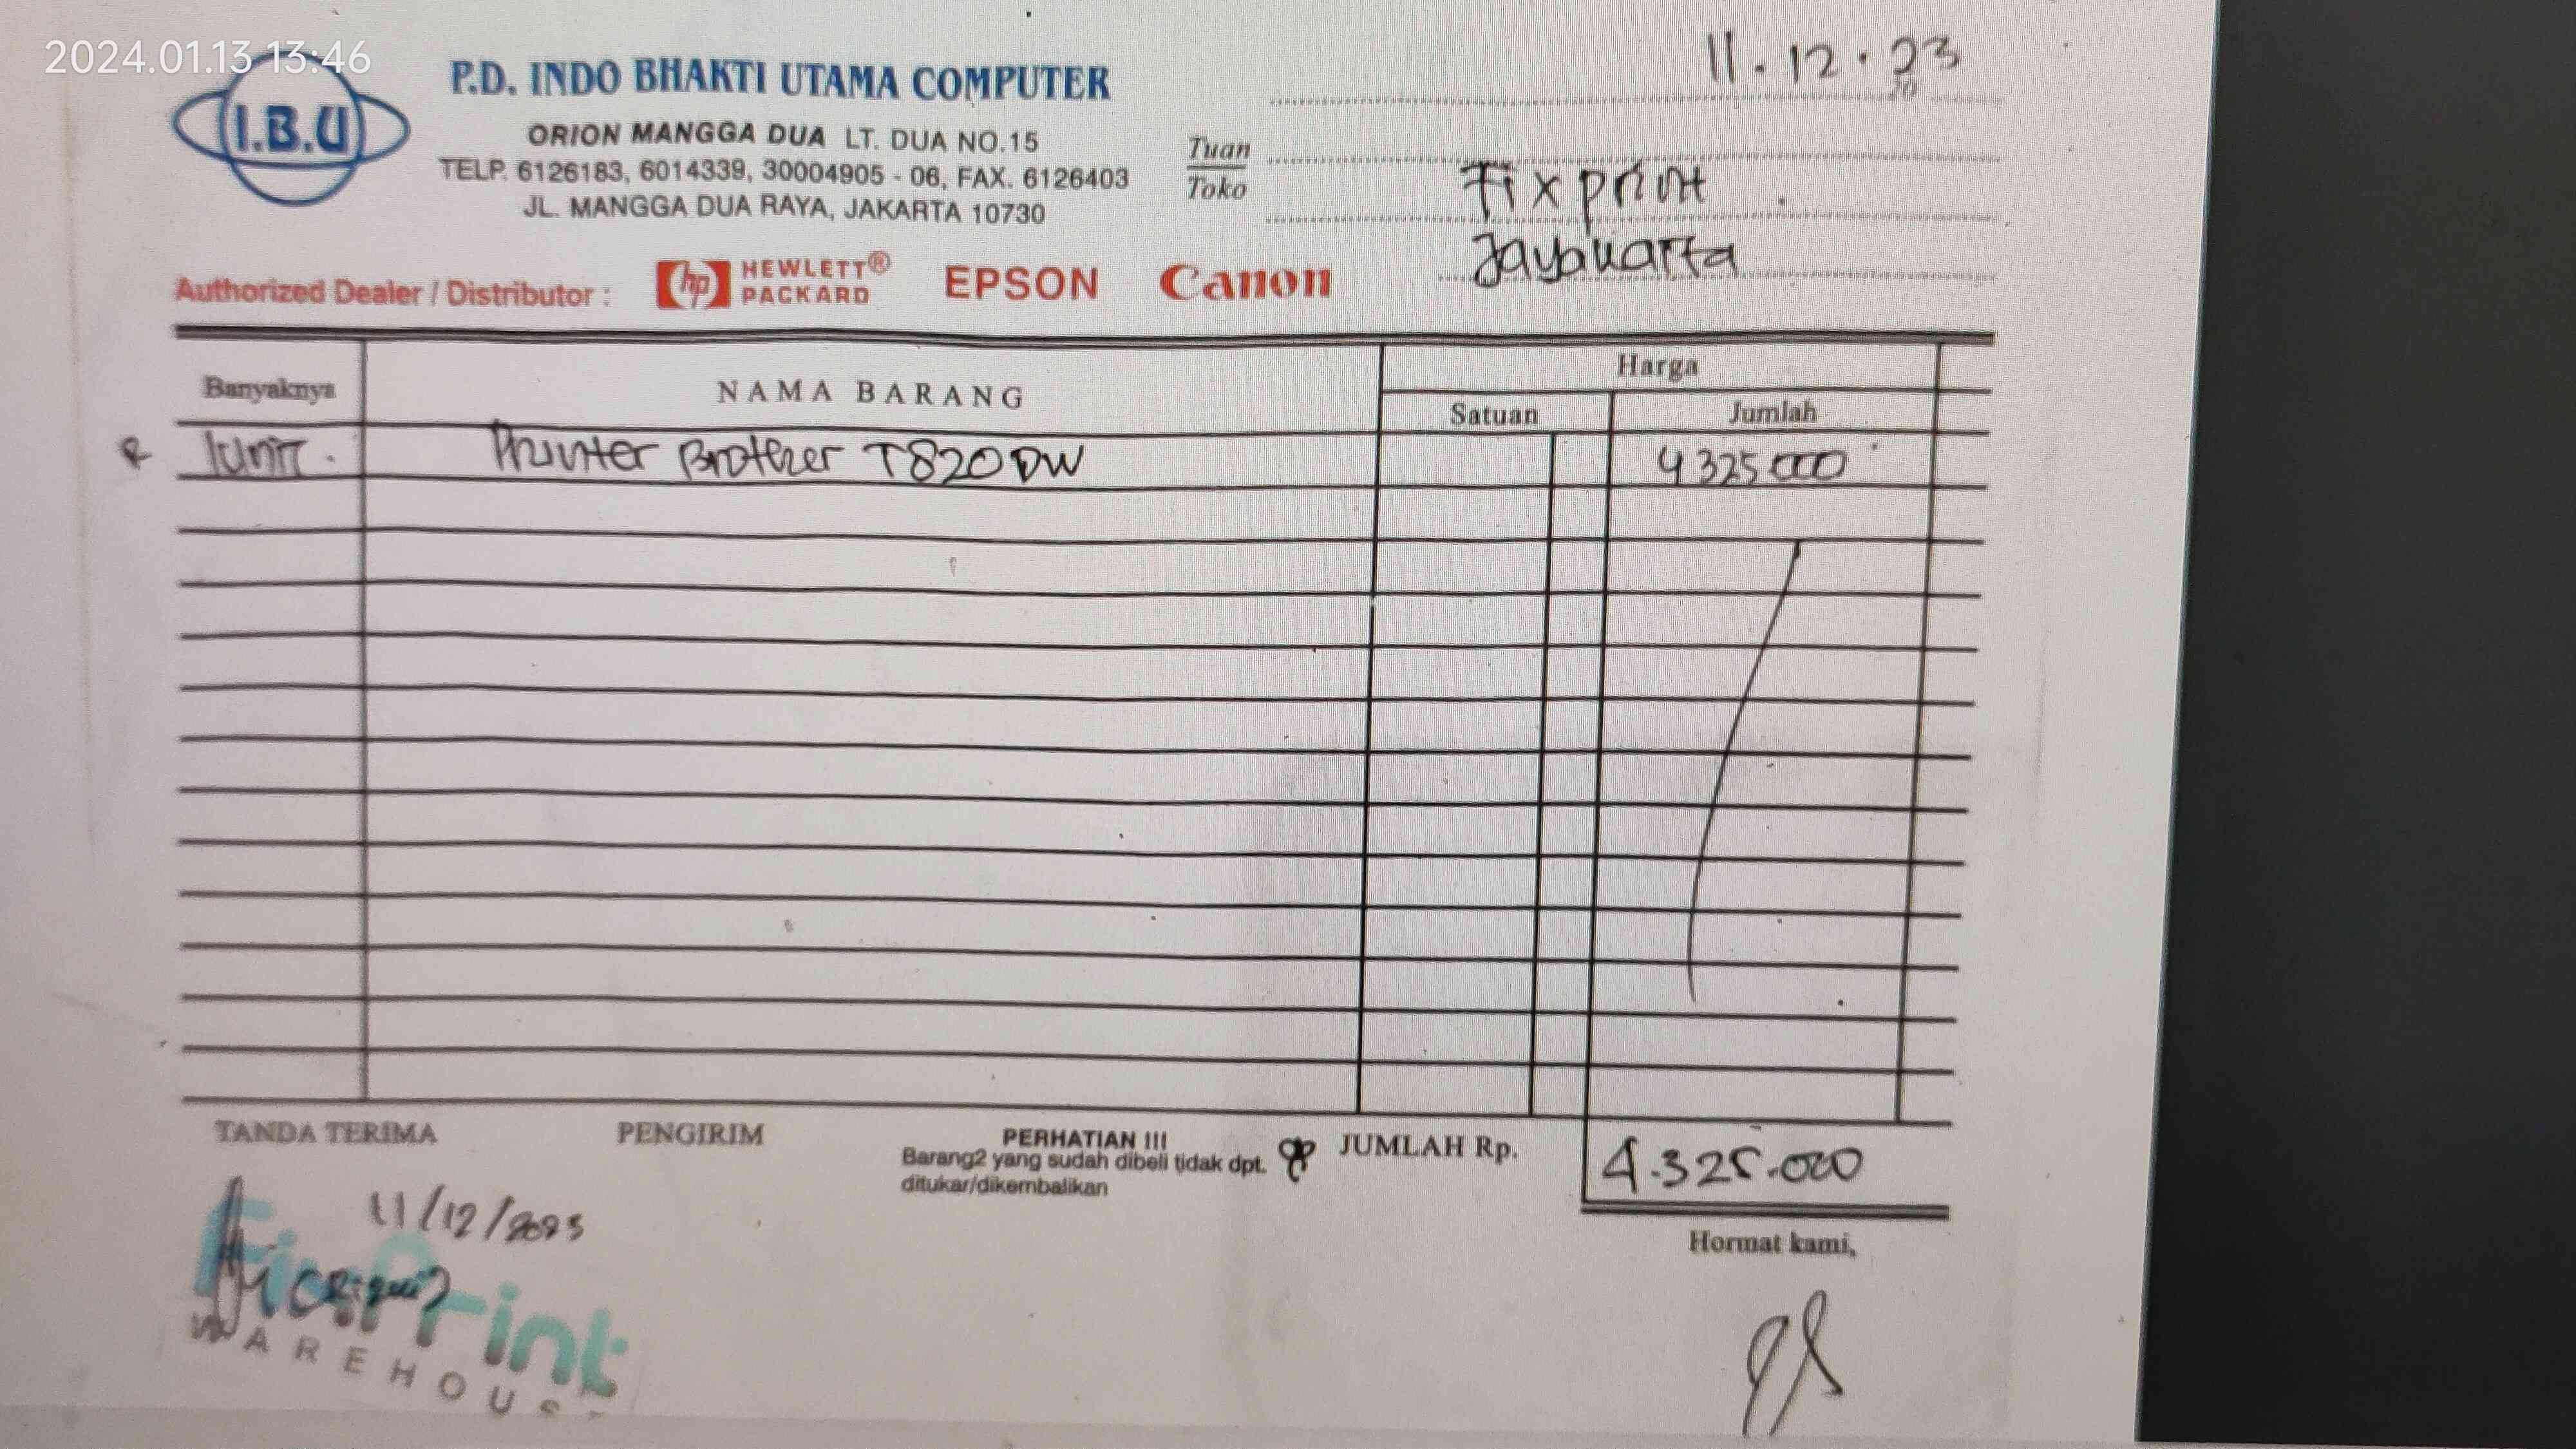 2024.01.13 13:46
I.B.U
P.D. INDO BHAKTI UTAMA COMPUTER
ORION MANGGA DUA LT. DUA NO.15
TELP. 6126183, 6014339, 30004905 - 06, FAX. 6126403
JL. MANGGA DUA RAYA, JAKARTA 10730
11.12.23
20
Tuan
Toko
Fixprint
Jayakarta
Authorized Dealer / Distributor :
hp HEWLETT®
PACKARD
EPSON
Canon
Banyaknya
NAMA BARANG
Harga
Satuan
Jumlah
1unit.
Printer Brother T820DW
4325000
TANDA TERIMA
PENGIRIM
PERHATIAN !!!
Barang2 yang sudah dibeli tidak dpt.
ditukar/dikembalikan
JUMLAH Rp.
4.325.000
11/12/2023
FixPrint
WAREHOUSE
Hormat kami,